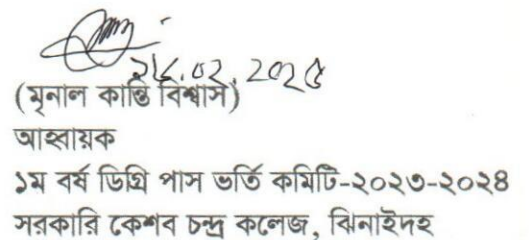 (মৃনাল কান্তি বিশ্বাস)
আহ্বায়ক
১ম বর্ষ ডিগ্রি পাস ভর্তি কমিটি-২০২৩-২০২৪
সরকারি কেশব চন্দ্র কলেজ, ঝিনাইদহ